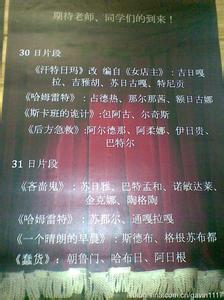 期待老师、同学们的到来！
30 日片段
《汗特日玛》改 编自《女店主》：吉日嘎
拉、吉雅胡、苏日古嘎、特尼贡
《哈姆雷特》：占德热、那尔那茜、额日古娜
《斯卡班的诡计》:包阿古、尔奇斯
《后方急救》:阿尔德那、阿柔娜、伊日贵、
巴特尔
31 日片段
《吝啬鬼》：苏日雅、巴特孟和、诺敏达莱、
金克娜、陶格陶
《哈姆雷特》：苏都尔、通嘎拉嘎
《一个晴朗的早晨》：斯德布、格根苏布都
《蠢货》：朝鲁门、哈布日、阿日根